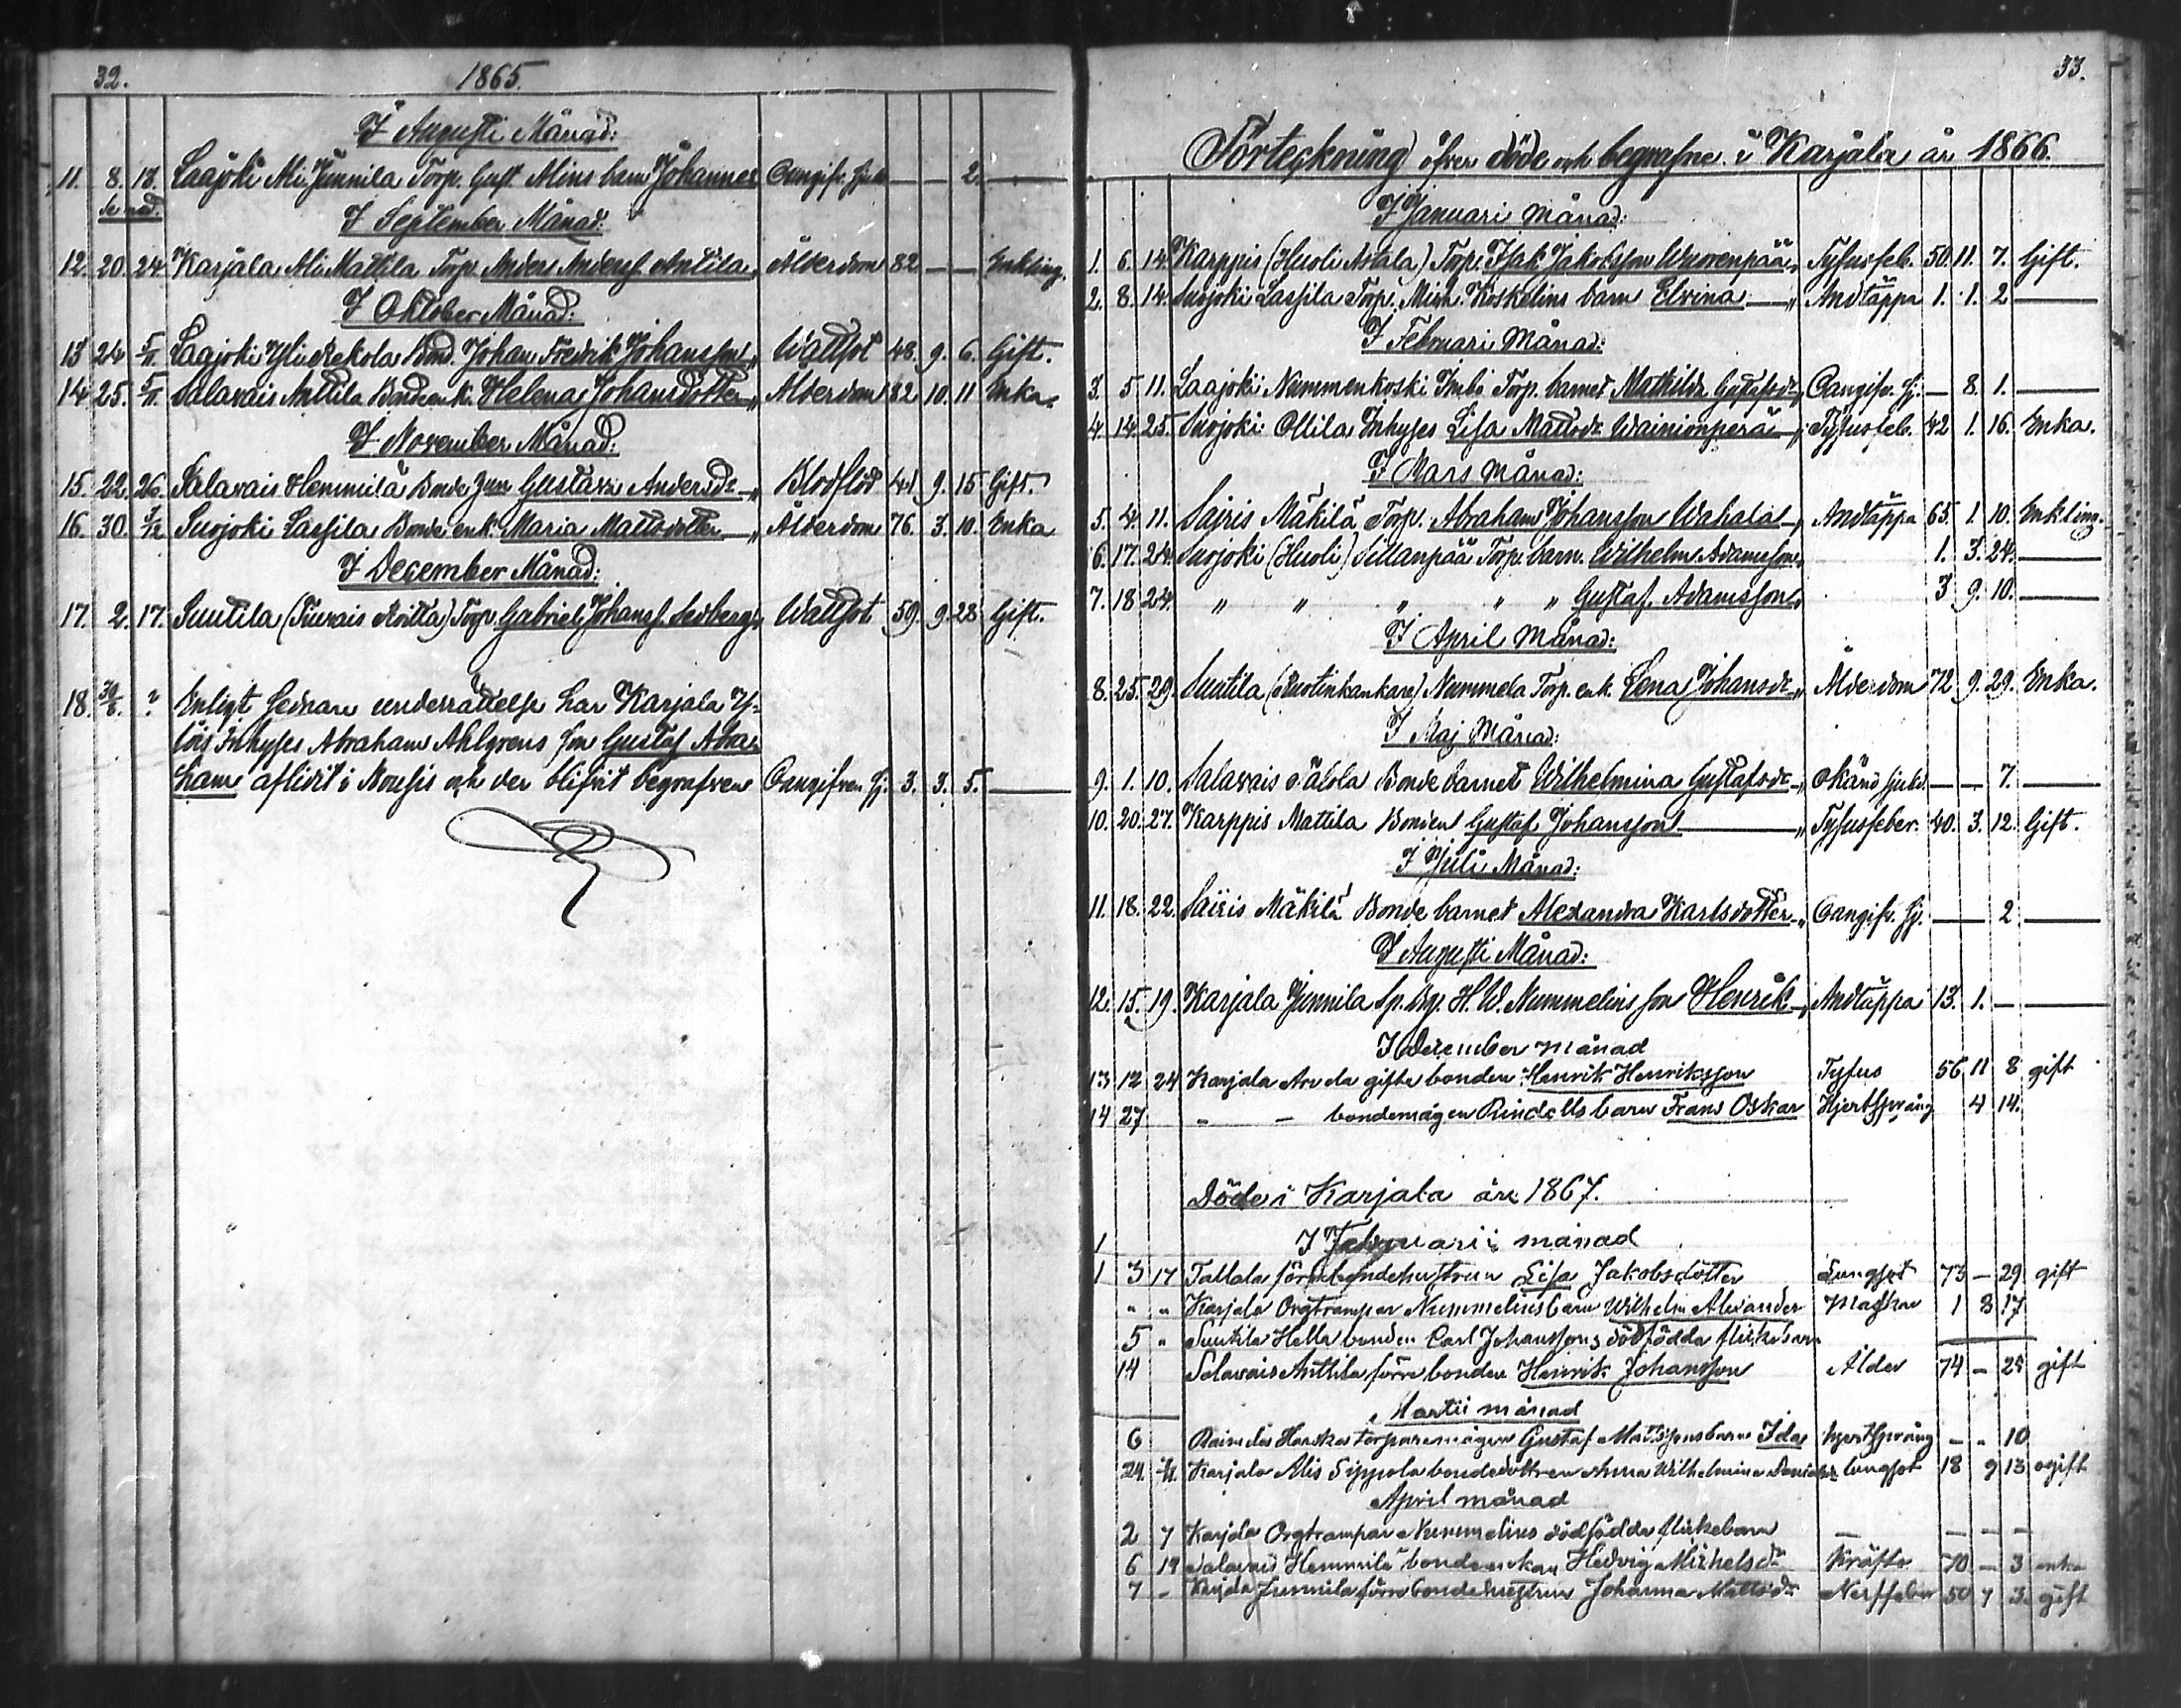 32.
1865.
I Augusti Månad:
11. 8. 13. Laajoki Ali Junnila Torp. Gust. Alins barn Johannes Oangifv. — — 2. —
I September Månad:
12. 20. 24. Karjala Ali Mattila Torp. Anders Andersf. Antila Ålderdom 82 — — Enkling.
I Oktober Månad:
13 24 5/11 Laajoki Yli Rekola Bond. Johan Fredrik Johansson Wattsot 48. 9. 6. Gift.
14 25. 5/11. Salavais Anttila Bonde enk. Helena Johansdotter Ålderdom 82 10. 11 Enka.
I November Månad:
15. 22. 26. Salavais Hemmilä Bonde Gustava Andersdr Blodflod 41 9. 15 Gift.
16. 30. 3/12 Suojoki Lassila Bonde enk. Maria Mattsdotter Ålderdom 76. 3. 10. Enka
I December Månad:
17. 2. 17. Suutila Torp. Gabriel Johansf. Sedberg Wattsot 59. 9. 28 Gift.
18. 30/8. ? Enligt sednare underrättelse har Karjala
Inhyses Abraham Ahlgrens son Gustaf Abra-
ham aflidit i Nousis och der blifvit begrafven Oangifven sj. 3. 3. 5. —
33.
Förteckning öfver döde och begrafne i Karjala år 1866.
I Januari Månad:
1. 6. 14. Karppis (Huoli Astala) Torp. Isak Jakobsson Wuorenpää Tyfusfeb. 50. 11. 7. Gift.
2. 8. 14. Suojoki Lassila Torp. Mich. Koskelins barn Elvina Andtäppa 1. 1. 2 —
I Februari Månad:
3. 5 11. Laajoki Nummenkoski Torp. barnet Mathilda Gustafsdr Oangifv. sj. — 8. 1. —
4. 14. 25. Suojoki Ollila Inhyses Lisa Mattsdr Wainionperä Tyfusfeb. 42 1. 16. Enka.
I Mars Månad:
5. 4. 11. Sairis Mäkilä Torp. Abraham Johansson Wahala Andtäppa 65. 1. 10. Enkling.
6. 17. 24. Suojoki (Huoli) Sillanpää Torp. barn. Wilhelm Adamsson 1. 3. 24. —
7. 18 24. " " " " " Gustaf Adamsson 3 9. 10. —
I April Månad:
8. 25. 29. Suutila Nummela Torp. enk. Lena Johansdr Ålderdom 72 9. 29. Enka.
I Maj Månad:
9. 1. 10. Salavais Bonde barnet Wilhelmina Gustafsdr okänd sjukd. — — 7. —
10. 20. 27. Karppis Mattila Bonden Gustaf Johansson Tyfusfeber. 40. 3. 12. Gift.
I Juli Månad:
11. 18. 22. Sairis Mäkilä Bonde barnet Alexandra Karlsdotter Oangifv. sj. — — 2 —
I Augusti Månad:
12. 15. 19. Karjala Junnila H. W. Nummelins son Henrik Andtäppa 13. 1. — —
I December månad
13 12 24 Karjala gifte bonden Henrik Henriksson Tyfus 56 11 8 gift
14 27 " — bondemågen Rindells barn Frans Oskar Hjertsprång 4 14.
Döde i Karjala år 1867.
1 I Februarii månad
1 3 17 Tallala förra bondehustrun Lisa Jakobsdotter Lungsot 73 — 29 gift
" " Karjala Orgtrampar Nummelins barn Wilhelm Alexander Maskar 1 8 17
5 " Suutila Hella bonden Carl Johanssons dödfödda flickebarn —
14 Salavais Anttila förre bonden Henrik Johansson Ålder 74 — 24 gift
Martii månad
6 torparemågen Gustaf Mattssons barn Ida hjertsprång — " 10
24. Karjala Alis Sippola bondedottren Anna Wilhelmina lungsot 18 9 13 ogift
April månad
2 7 Karjala Orgtrampare Nummelins dödfödda flickebarn — — — —
6 19 Salavais Hemmilä bondeenkan Hedvig Michelsdr Kräfta 70 — 3 enka
7 - Karjala Junnila förra bondehustrun Johanna Mattsdr Nerffeber 50 7 3. gift